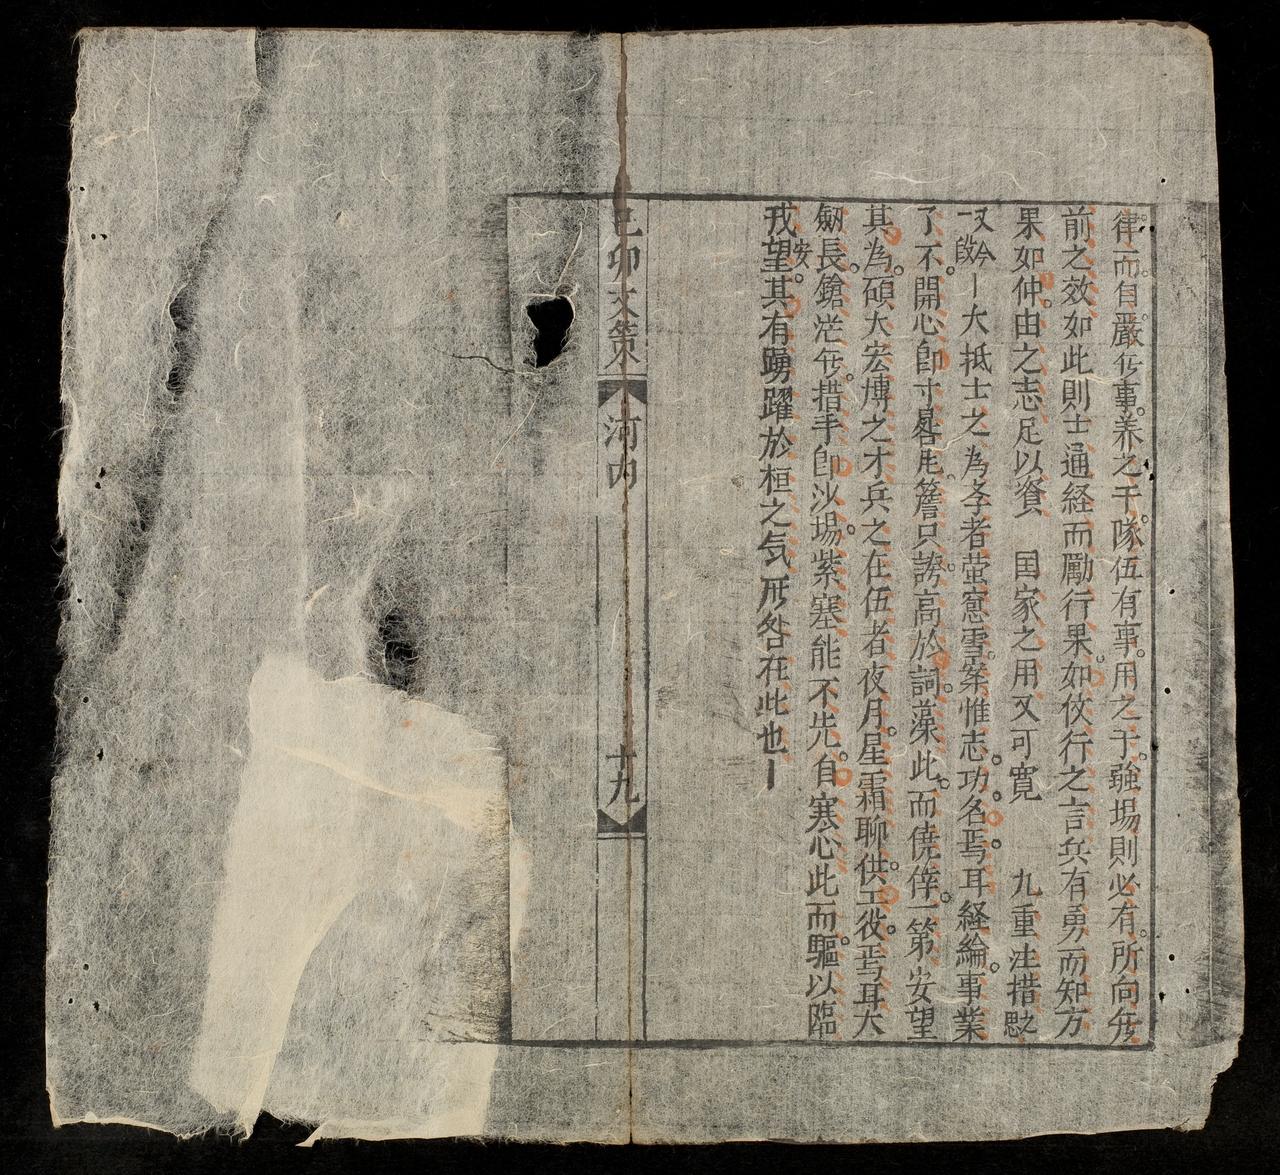 律而自嚴无事養之于隊伍有事用之于強場則必有所向无
前之效如此則士通経而勵行果如攸行之言兵有勇而知方
果如仲由之志足以資 国家之用又可寛 九重注措之
又一叚今大抵士之為孝者萤窓雪案惟志功名焉耳経綸事業
了不開心即寸晷尾簷只誇高於詞藻此而僥倖一第安望
其為碩大宏博之才兵之在伍者夜月星霜聊供工役焉耳大
劔長鎗茫无措手即沙場紫塞能不先自寒心此而驅以臨
戎安望其有踴躍於桓之気所咎在此也
己卯文策 河内 十九